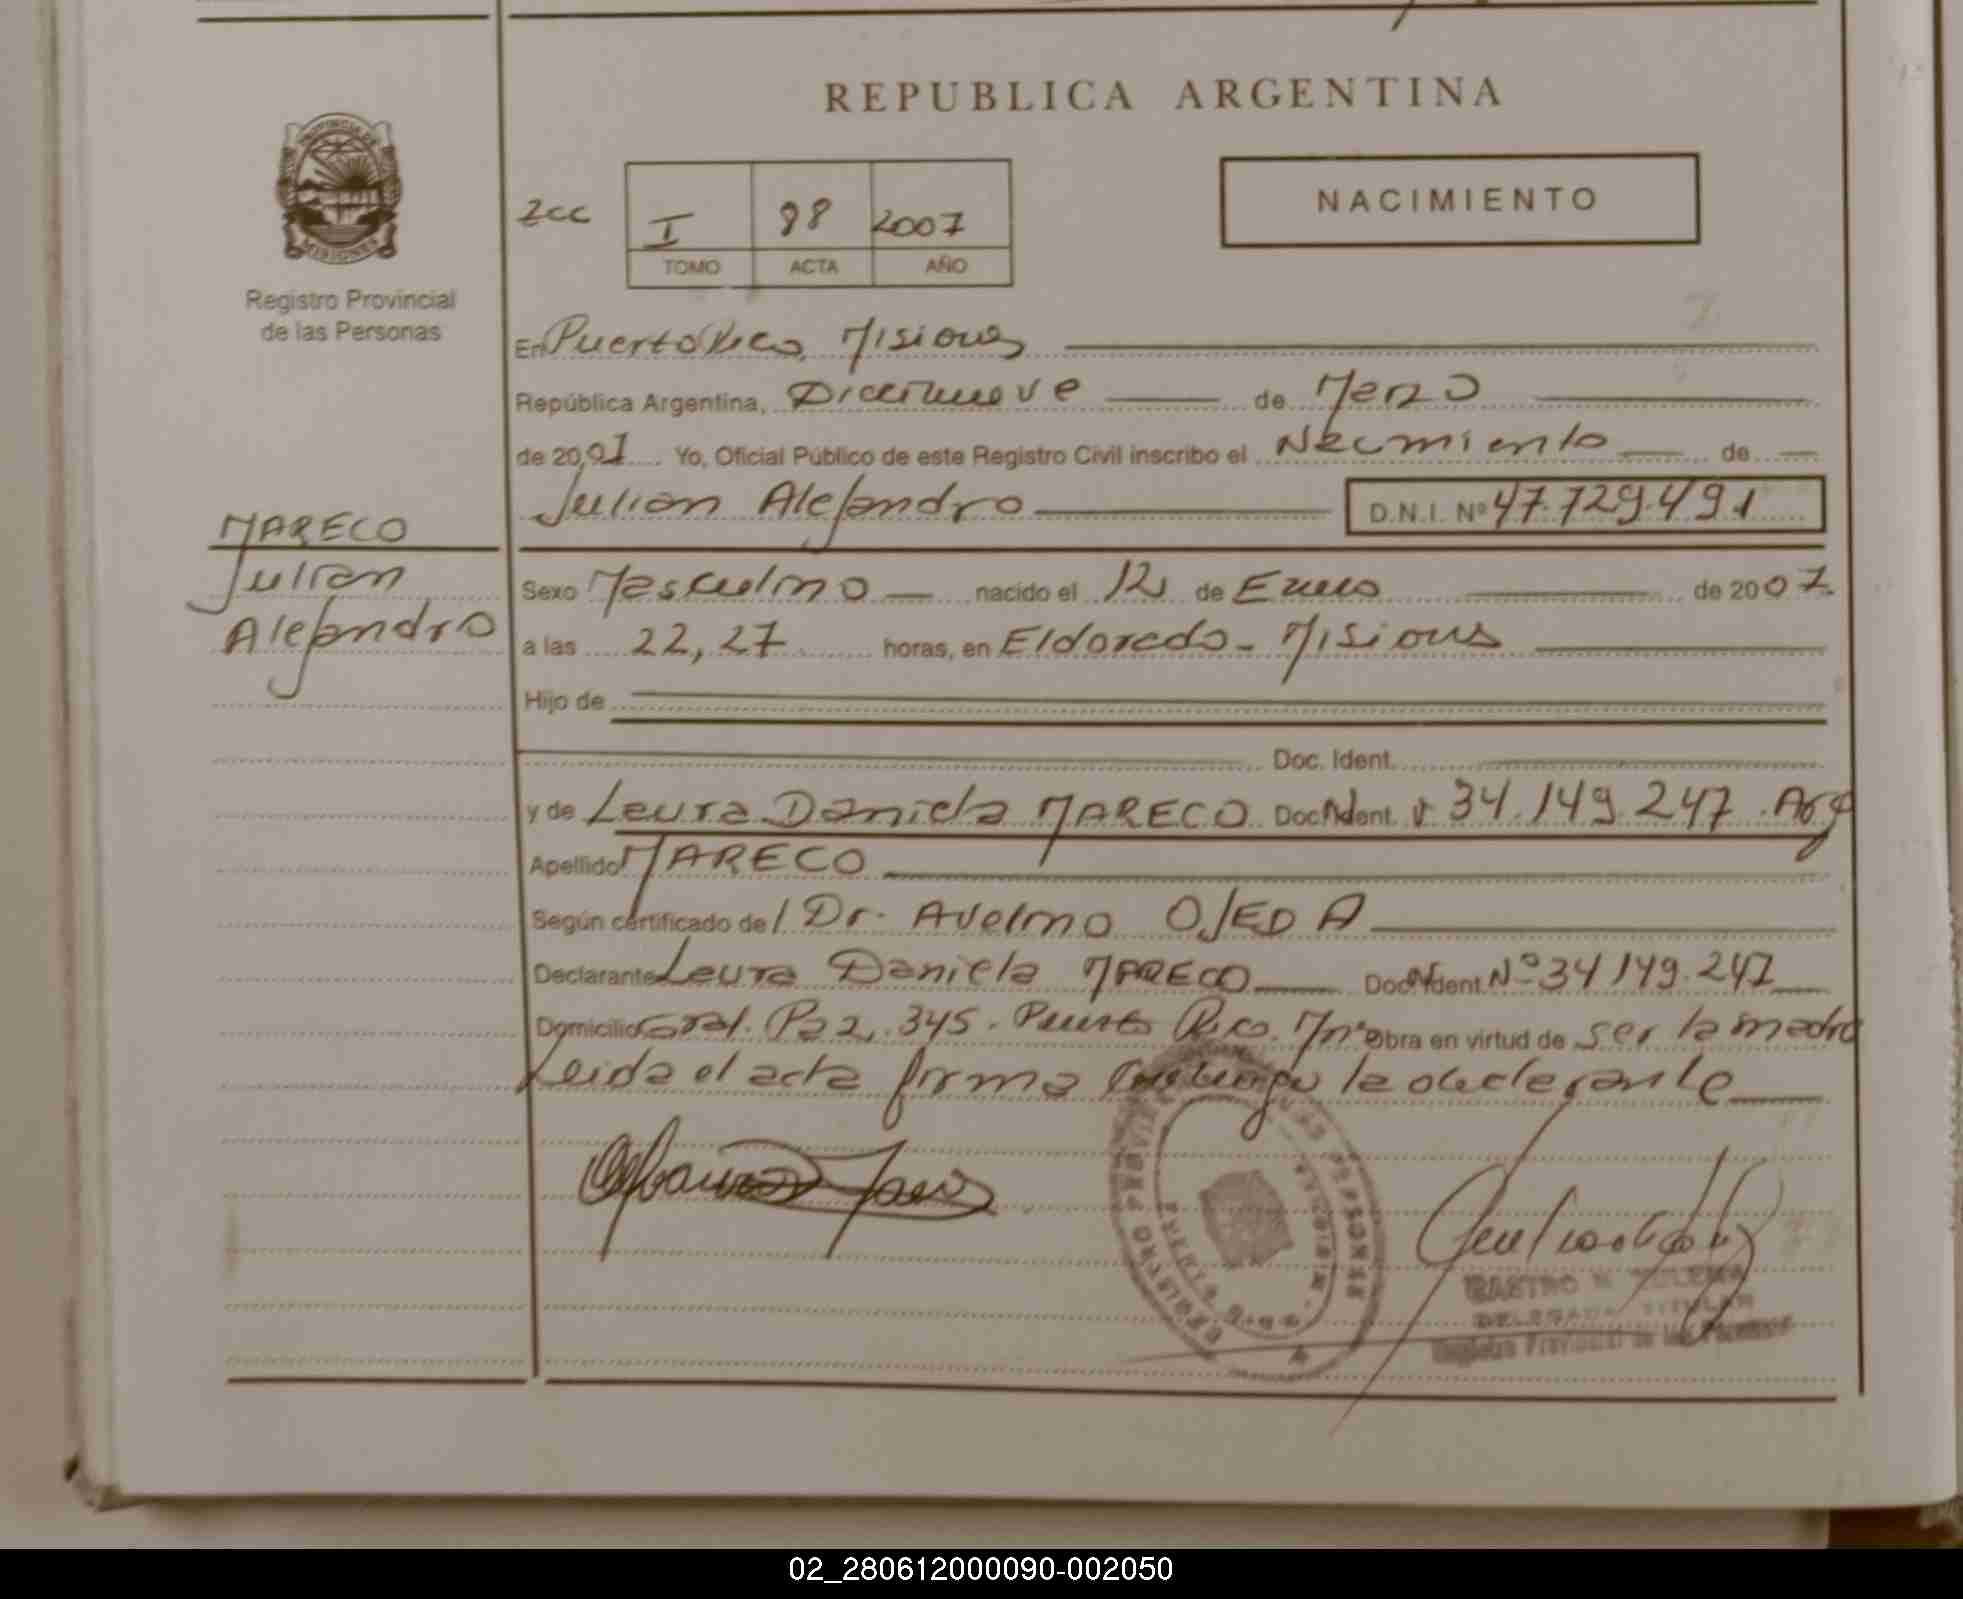 REPUBLICA ARGENTINA
PROVINCIA DE
MISIONES
Registro Provincial
de las Personas
NACIMIENTO
2cc I 98 2007
TOMO ACTA AÑO
En Puerto Rico, Misiones
República Argentina, Diecinueve de Marzo
de 2007 Yo, Oficial Público de este Registro Civil inscribo el Nacimiento de
Julian Alejandro D.N.I. Nº 47.729.491
MARECO
Julian
Alejandro
Sexo Masculino nacido el 12 de Enero de 2007.
a las 22,27 horas, en Eldorado - Misiones
Hijo de
Doc. Ident.
y de Laura Daniela MARECO Doc. Ident. 34.149.247 . Arg
Apellido MARECO
Según certificado del Dr. Avelino OJEDA
Declarante Laura Daniela MARECO Doc. Ident. Nº 34149.247
Domicilio Gral. Paz, 345. Puerto Rico. Mnes Obra en virtud de ser la madre
Leida el acta firma conmigo la declarante
REGISTRO PROVINCIAL DE LAS PERSONAS
CASTRO
DELEGADA TITULAR
Registro Provincial de las Personas
02_280612000090-002050